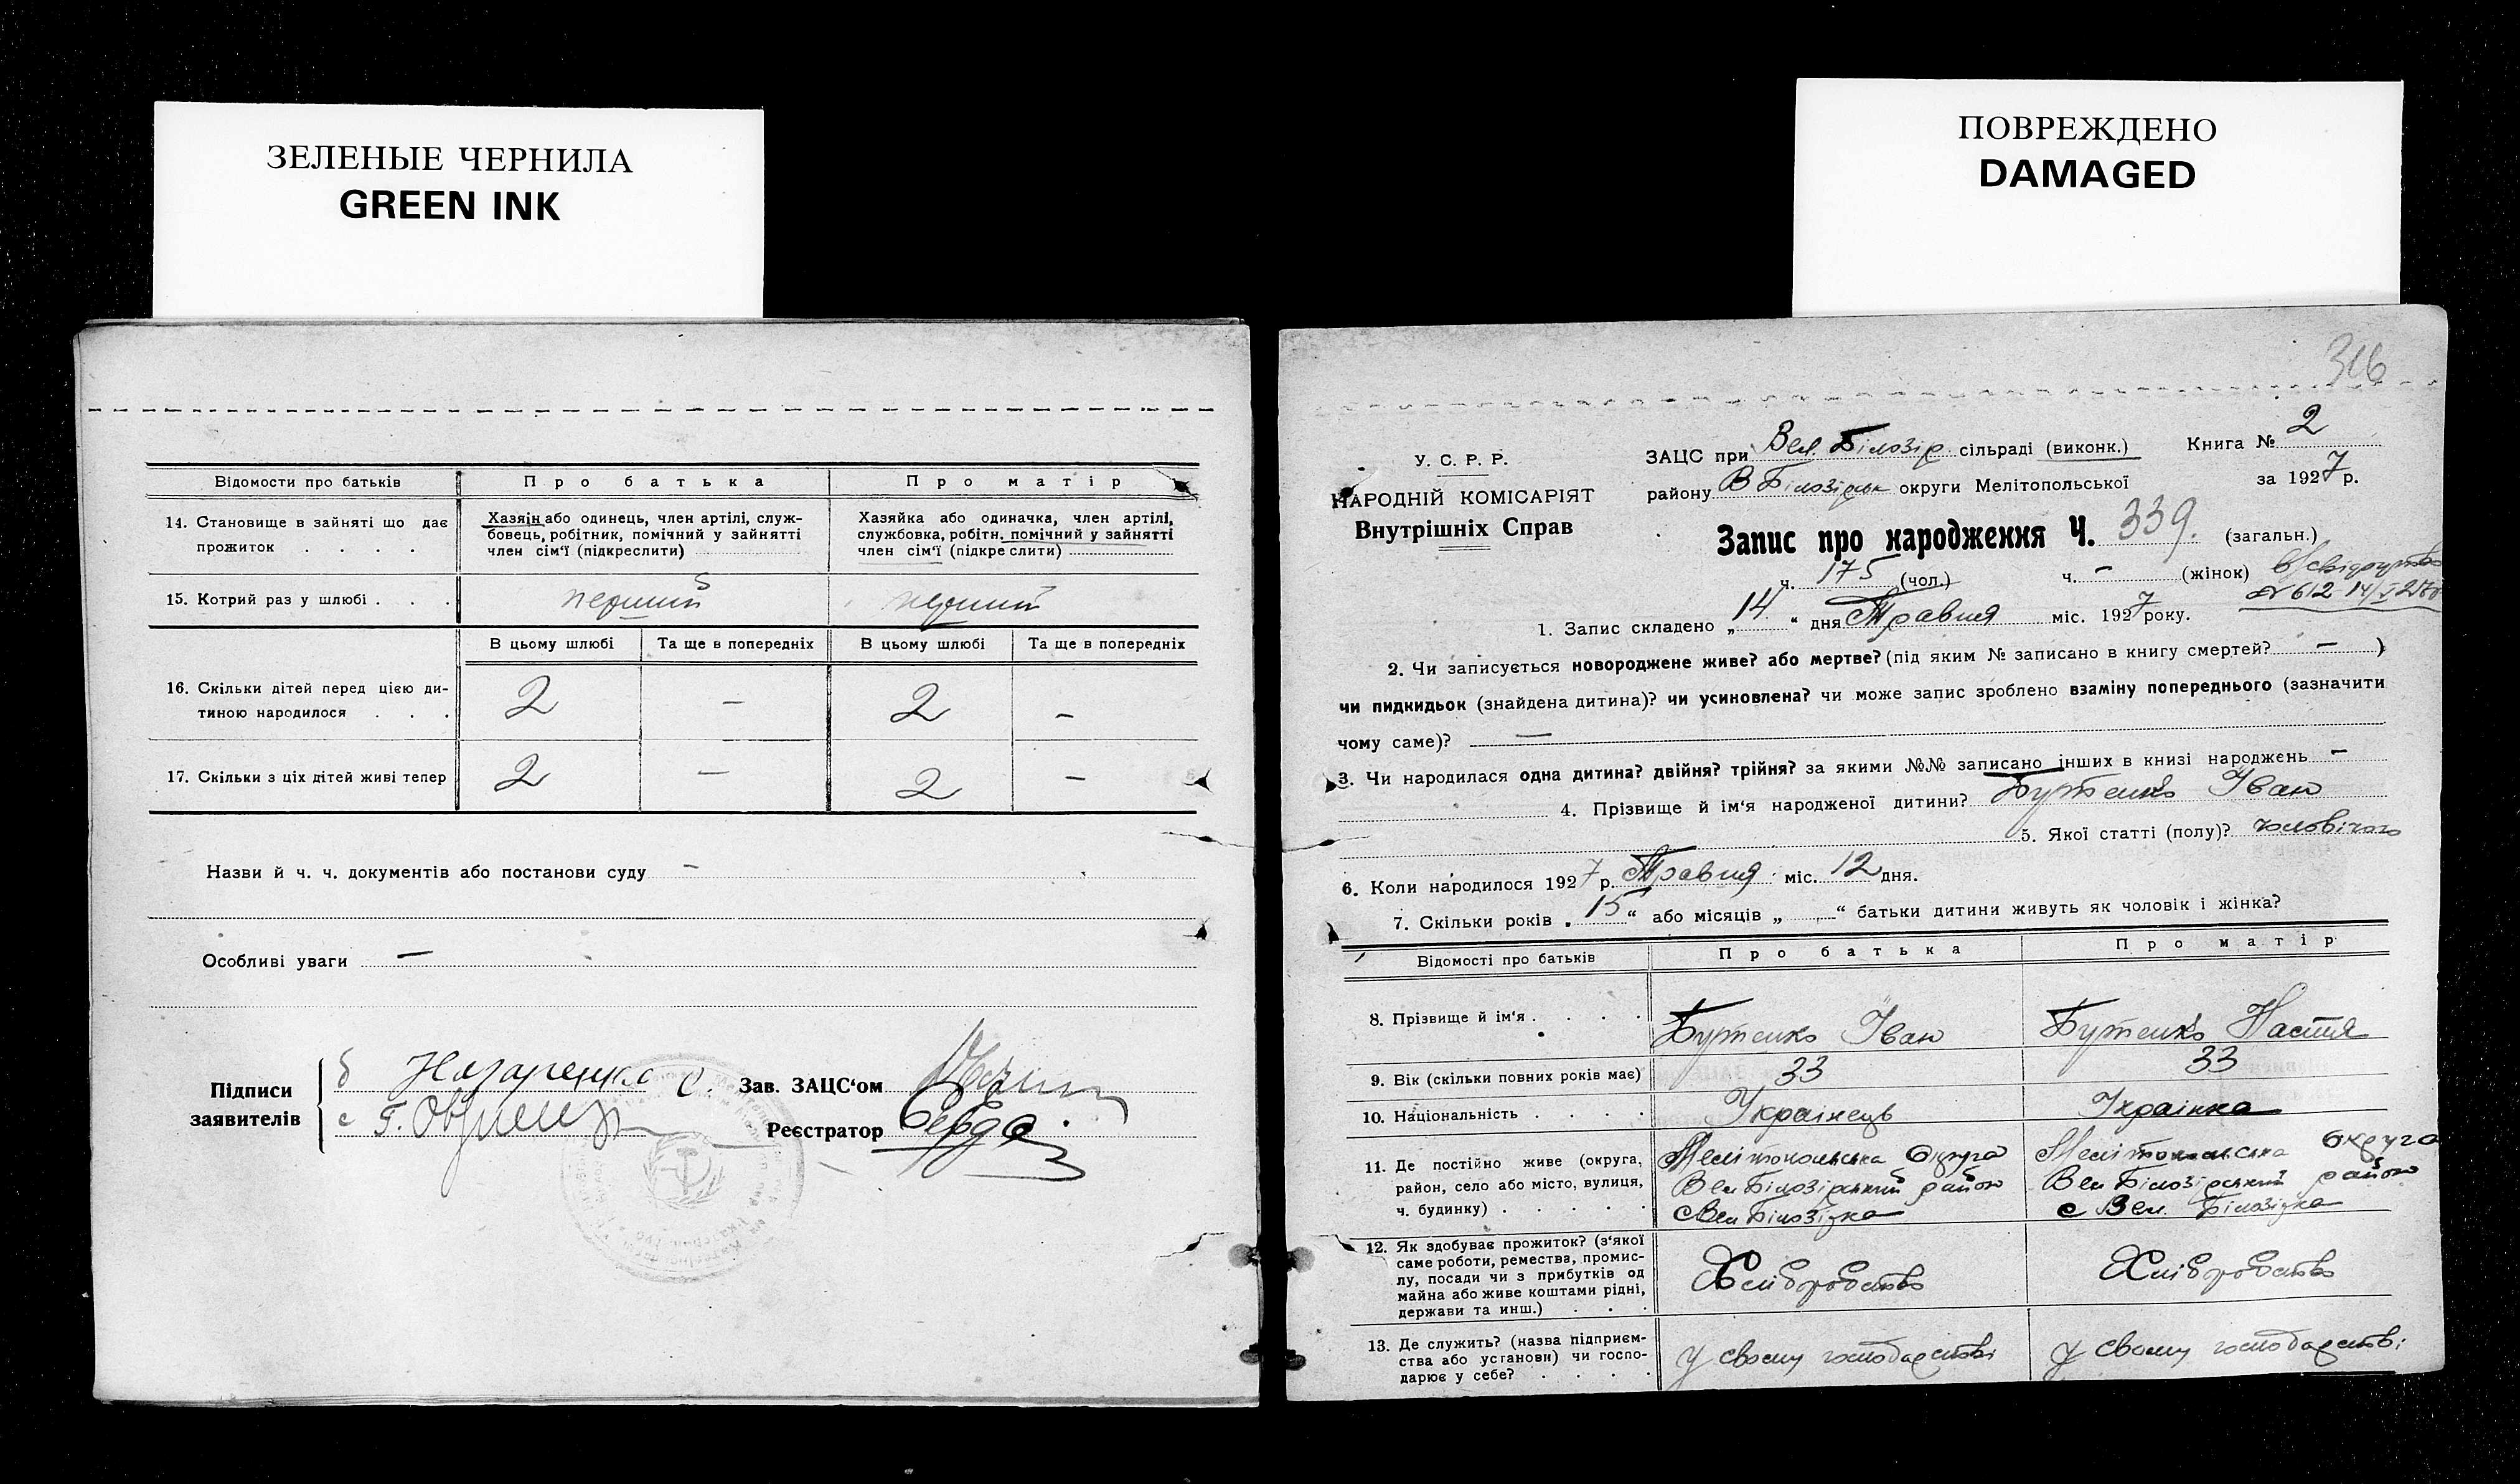 ЗЕЛЕНЫЕ ЧЕРНИЛА
GREEN INK
Відомости про батьків
Про батька
Про матір
14. Становище в зайняті що дає прожиток . . . .
Хазяїн або одинець, член артілі, служ-
бовець, робітник, помічний у зайнятті
член сім'ї (підкреслити)
Хазяйка або одиначка, член артілі,
службовка, робітн. помічний у зайнятті
член сім'ї (підкреслити)
15. Котрий раз у шлюбі . . .
перший
перший
В цьому шлюбі
Та ще в попередніх
В цьому шлюбі
Та ще в попередніх
16. Скільки дітей перед цією ди-
тиною народилося . . .
2
—
2
—
17. Скільки з ціх дітей живі тепер
2
—
2
—
Назви й ч. ч. документів або постанови суду —
Особливі уваги —
Підписи
заявителів
б Назаренко С.
с Г.
Зав. ЗАЦС'ом
Реєстратор Серда
ПОВРЕЖДЕНО
DAMAGED
316
У. С. Р. Р.
НАРОДНІЙ КОМІСАРІЯТ
Внутрішніх Справ
ЗАЦС при Вел. Білозір. сільраді (виконк.)
Книга № 2
району В Білозірськ округи Мелітопольської
за 1927 р.
Запис про народження Ч. 339. (загальн.)
ч. 175 (чол.)
ч. — (жінок)
№ 612 14/V 27
1. Запис складено „14" дня Травня міс. 1927 року.
2. Чи записується новороджене живе? або мертве? (під яким № записано в книгу смертей? — )
чи пидкидьок (знайдена дитина)? чи усиновлена? чи може запис зроблено взаміну попереднього (зазначити
чому саме)? —
3. Чи народилася одна дитина? двійня? трійня? за якими №№ записано інших в книзі народжень —
4. Прізвище й ім'я народженої дитини? Бутенко Іван
5. Якої статті (полу)? чоловічого
6. Коли народилося 1927 р. Травня міс. 12 дня.
7. Скільки років „15" або місяців „—" батьки дитини живуть як чоловік і жінка?
Відомості про батьків
Про батька
Про матір
8. Прізвище й ім'я . . . .
Бутенко Іван
Бутенко Настя
9. Вік (скільки повних років має)
33
33
10. Національність . . . .
Українець
Українка
11. Де постійно живе (округа,
район, село або місто, вулиця,
ч. будинку) . . . . .
Мелітопольська Округа
Вел Білозірський район
с Вел Білозірка
Мелітопольська округа
Вел Білозірський район
с Вел. Білозірка
12. Як здобуває прожиток? (з'якої
саме роботи, ремества, промис-
лу, посади чи з прибутків од
майна або живе коштами рідні,
держави та инш.) . . .
Хліборобство
Хліборобство
13. Де служить? (назва підприєм-
ства або установи) чи госпо-
дарює у себе? . . . .
у своєму господарстві
у своєму господарстві